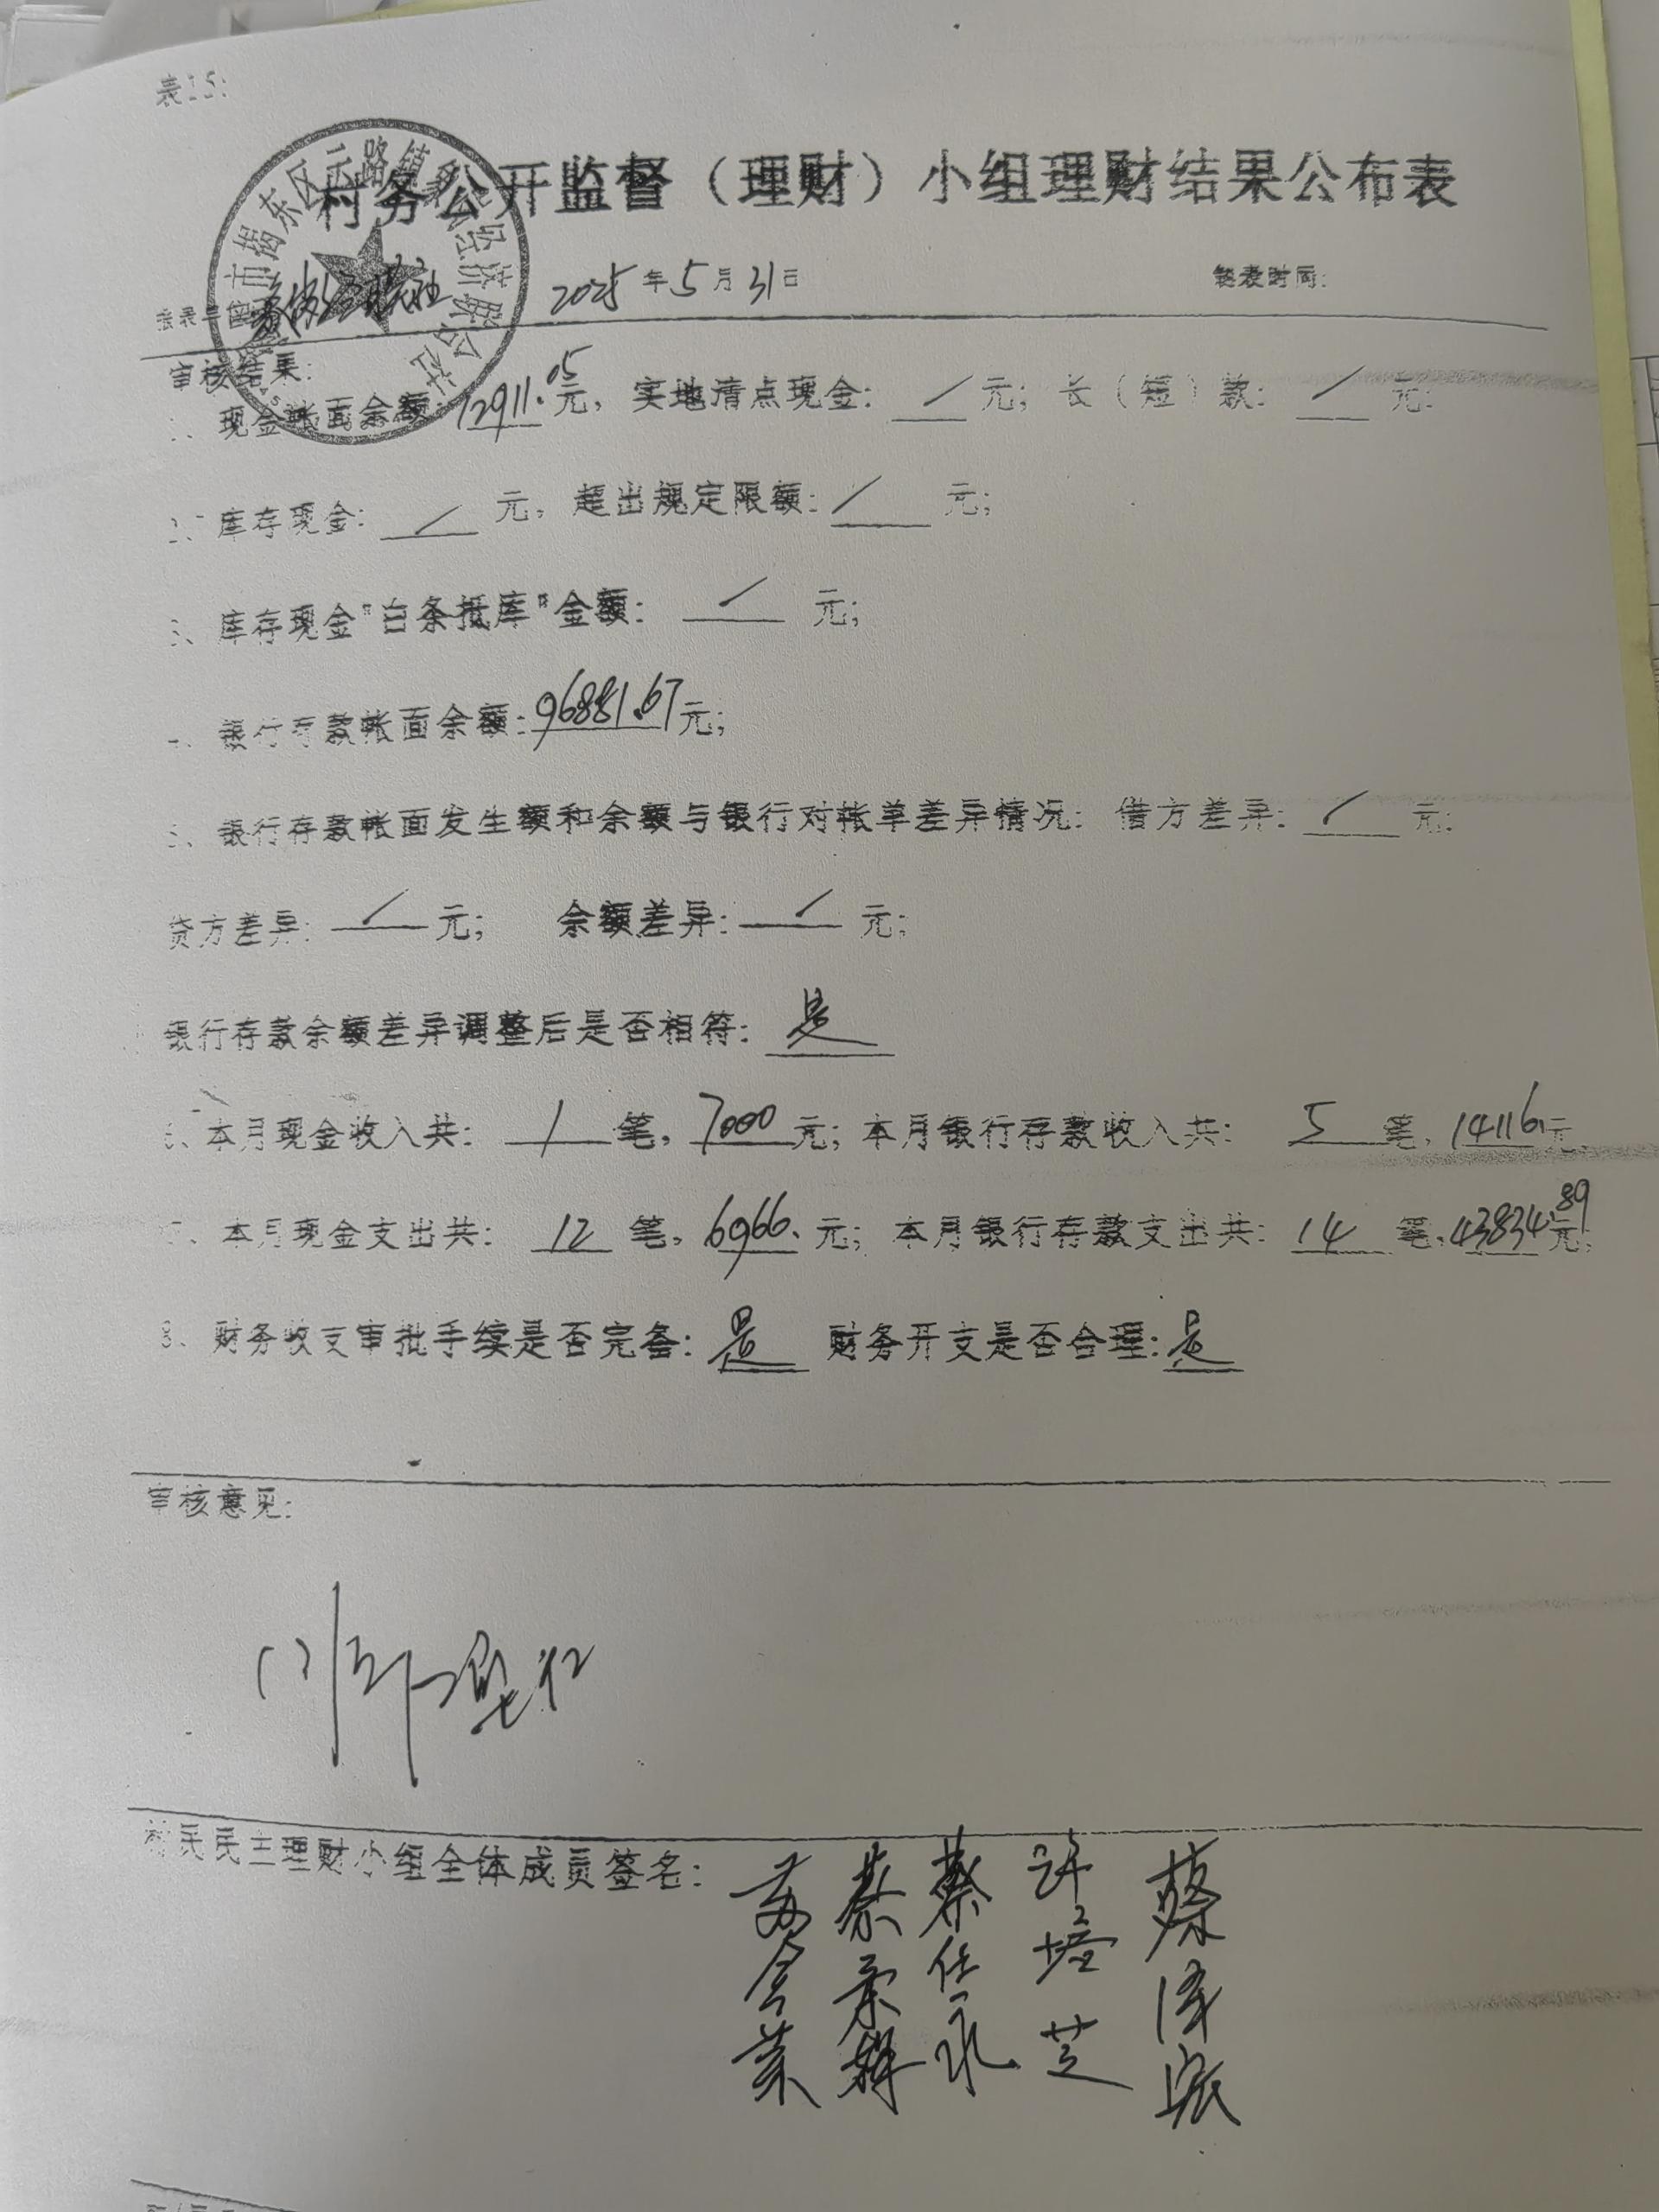 表15:
村务公开监督（理财）小组理财结果公布表
2025年5月31日 填表时间:
审核结果:
1、现金帐面余额:12911.05元，实地清点现金: / 元; 长（短）款: / 元;
2、库存现金: / 元，超出规定限额: / 元;
3、库存现金"白条抵库"金额: / 元;
4、银行存款帐面余额:96881.67元;
5、银行存款帐面发生额和余额与银行对帐单差异情况: 借方差异: / 元;
贷方差异: / 元; 余额差异: / 元;
银行存款余额差异调整后是否相符: 是
6、本月现金收入共: 1 笔，7000元; 本月银行存款收入共: 5 笔，14116元,
7、本月现金支出共: 12 笔，6966.元; 本月银行存款支出共: 14 笔，43834.89元;
8、财务收支审批手续是否完备: 是 财务开支是否合理: 是
审核意见:
村民民主理财小组全体成员签名:
蔡 蔡任永 许培芝 蔡泽